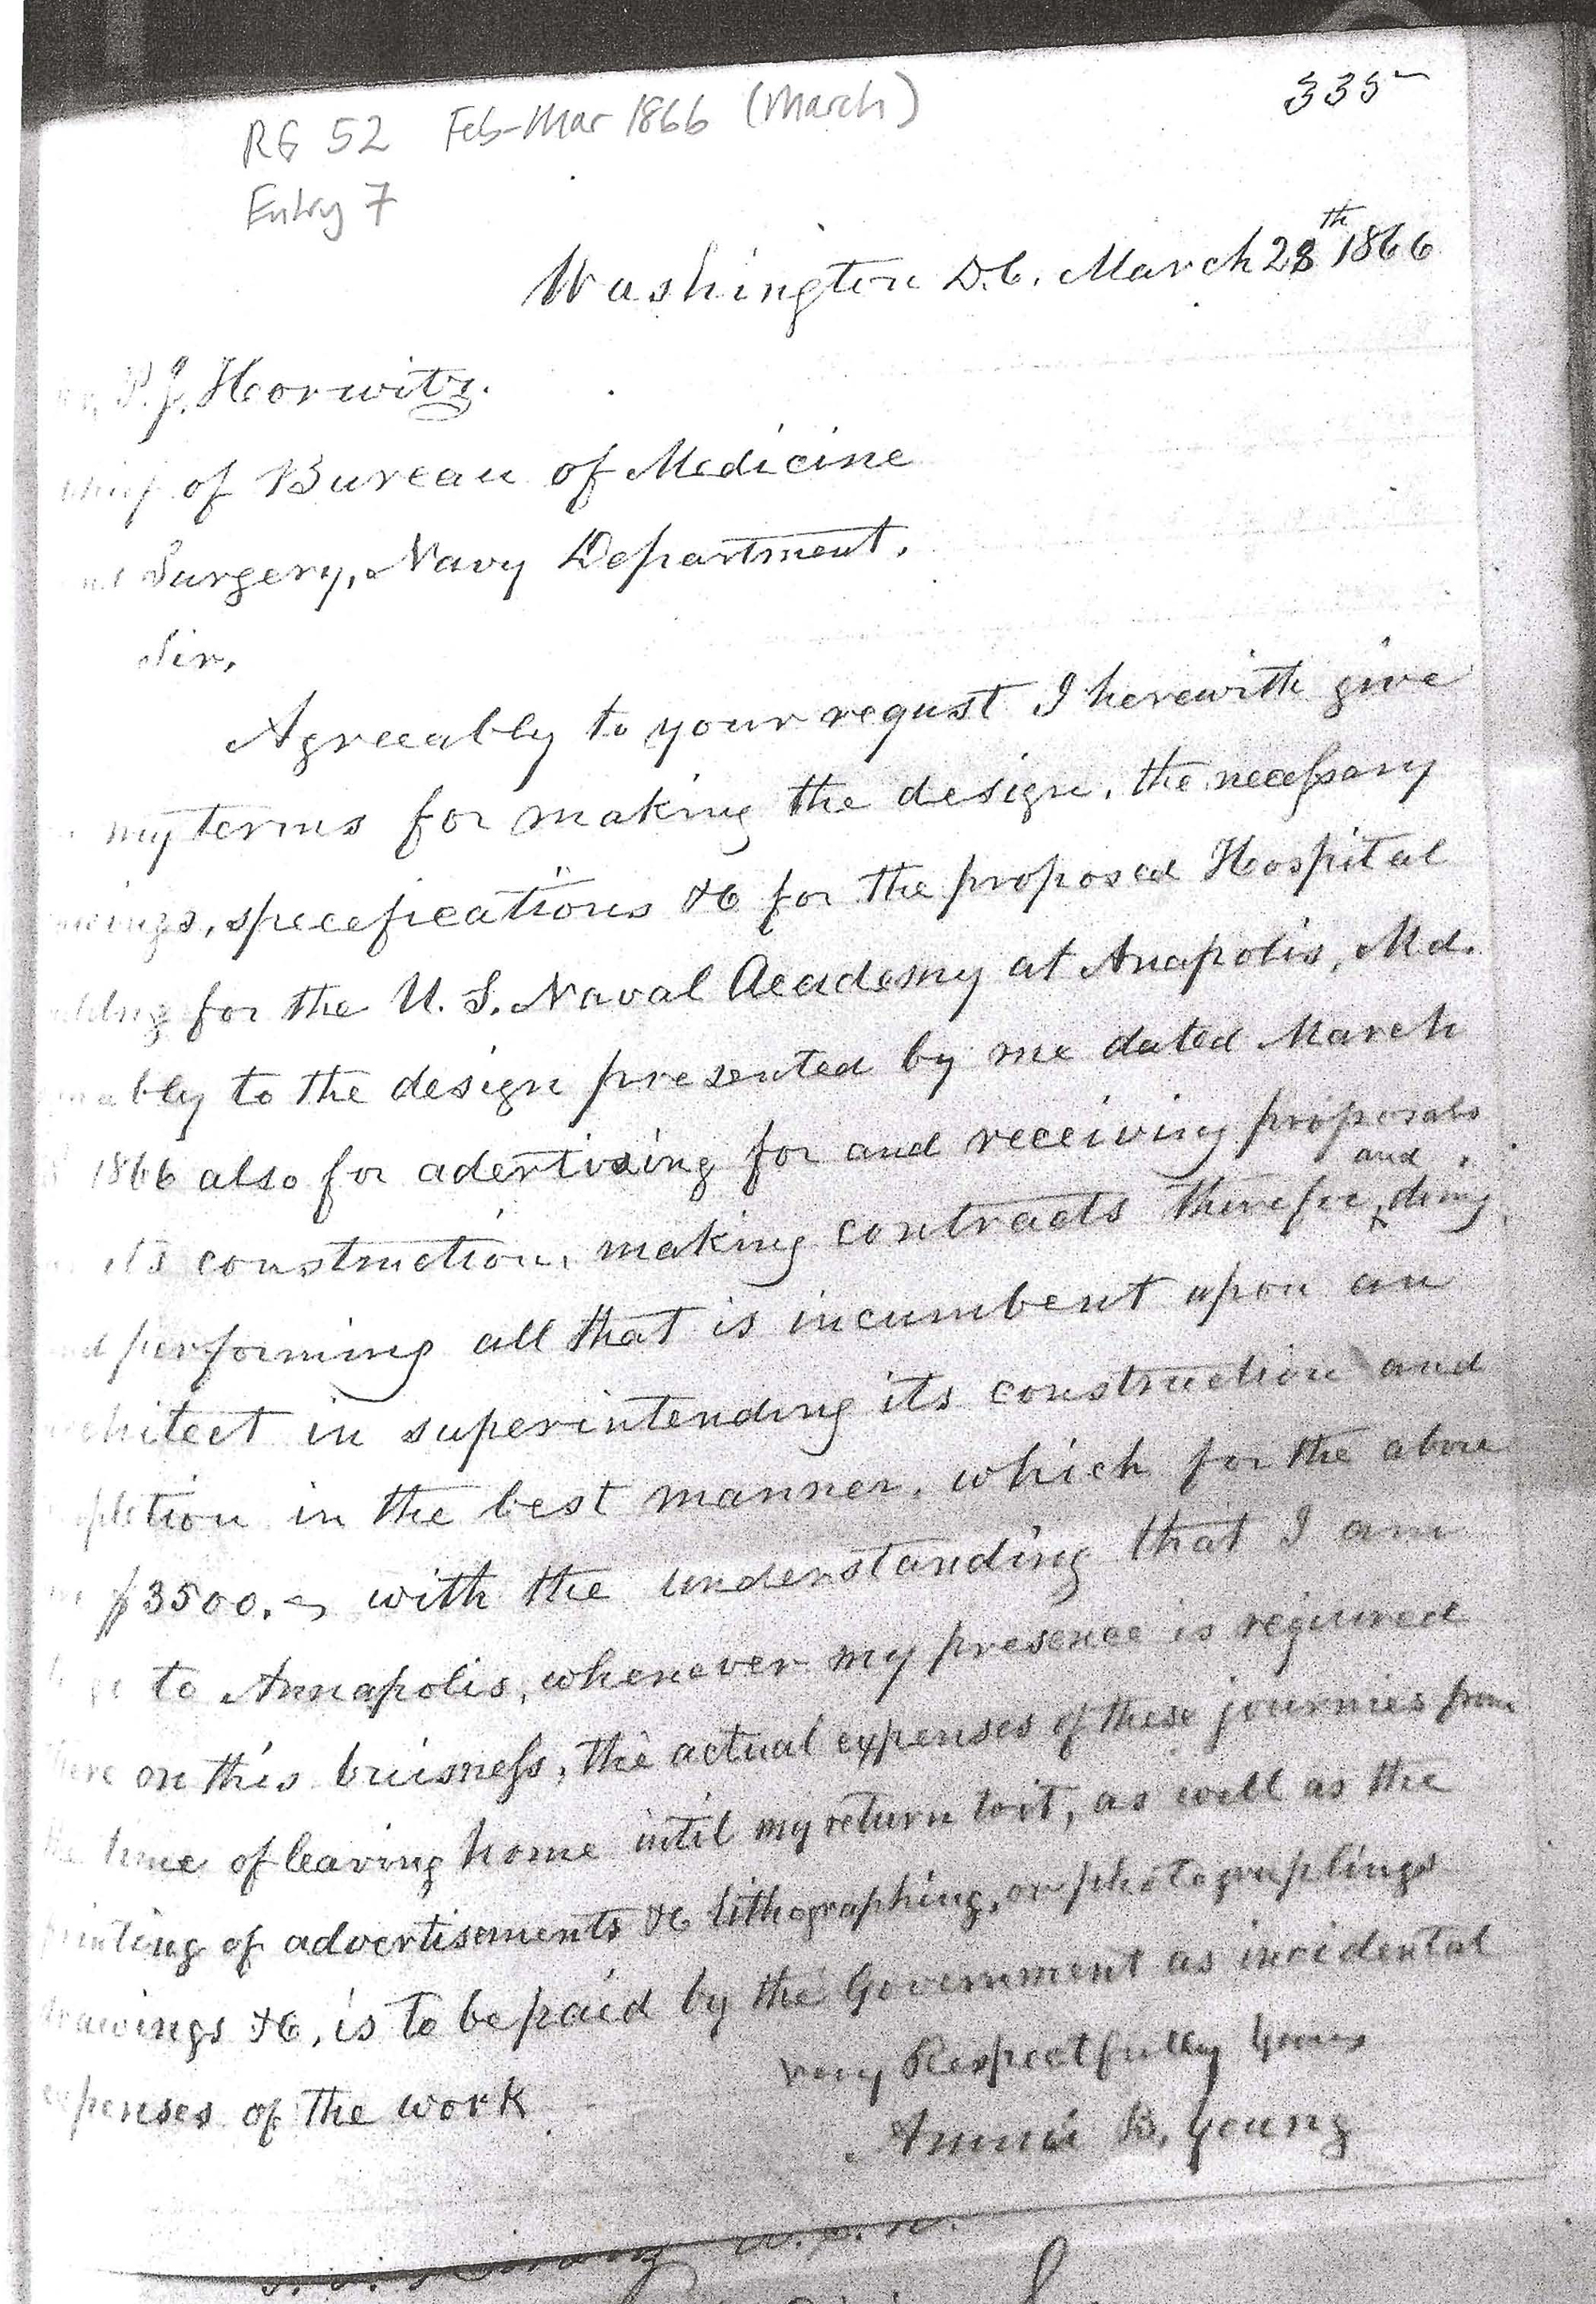 335
RG 52 Feb-Mar 1866 (March)
Entry 7
Washington D.C. March 28th 1866
P. J. Horwitz.
Chief of Bureau of Medicine
Surgery, Navy Department.
Sir,
Agreeably to your requst I herewith give
my terms for making the design, the necessary
specefications &c for the proposed Hospital
for the U. S. Naval Academy at Anapolis, Md.
ably to the design presented by me dated March
1866 also for adertising for and receiving proposals
its construction, making contracts therefor, and doing
performing all that is incumbent upon an
architect in superintending its construction and
pletion in the best manner, which for the above
$3500. with the understanding that I am
to Annapolis, whenever my presence is required
there on this buisness, the actual expenses of these journies from
the time of leaving home until my return to it, as well as the
printing of advertisements &c lithographing, or photographings
drawings &c, is to be paid by the Government as incidental
expenses of the work
Very Respectfully Yours
Ammi B. Young